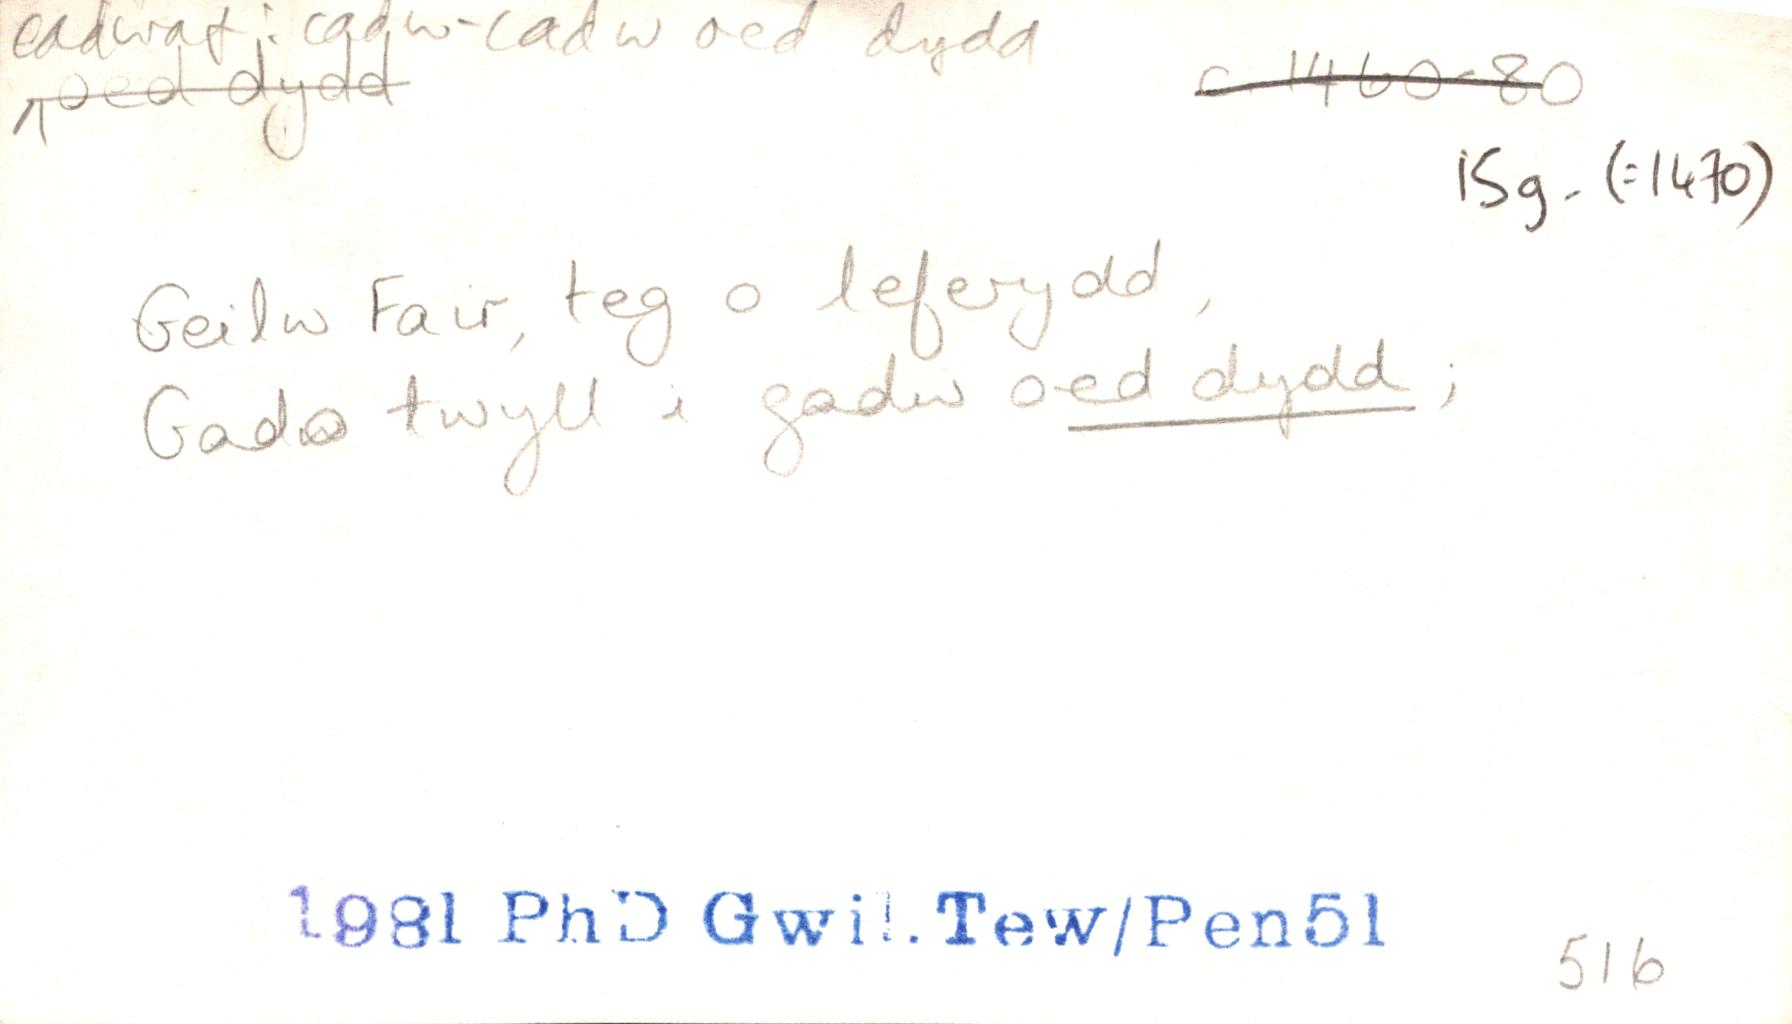 cadwaf: cadw-cadw oed dydd
oed dydd
c 1460-80
15g. (=1470)
Geilw Fair, teg o leferydd,
Gado twyll i gadw oed dydd;
1981 PhD Gwil.Tew/Pen51
516